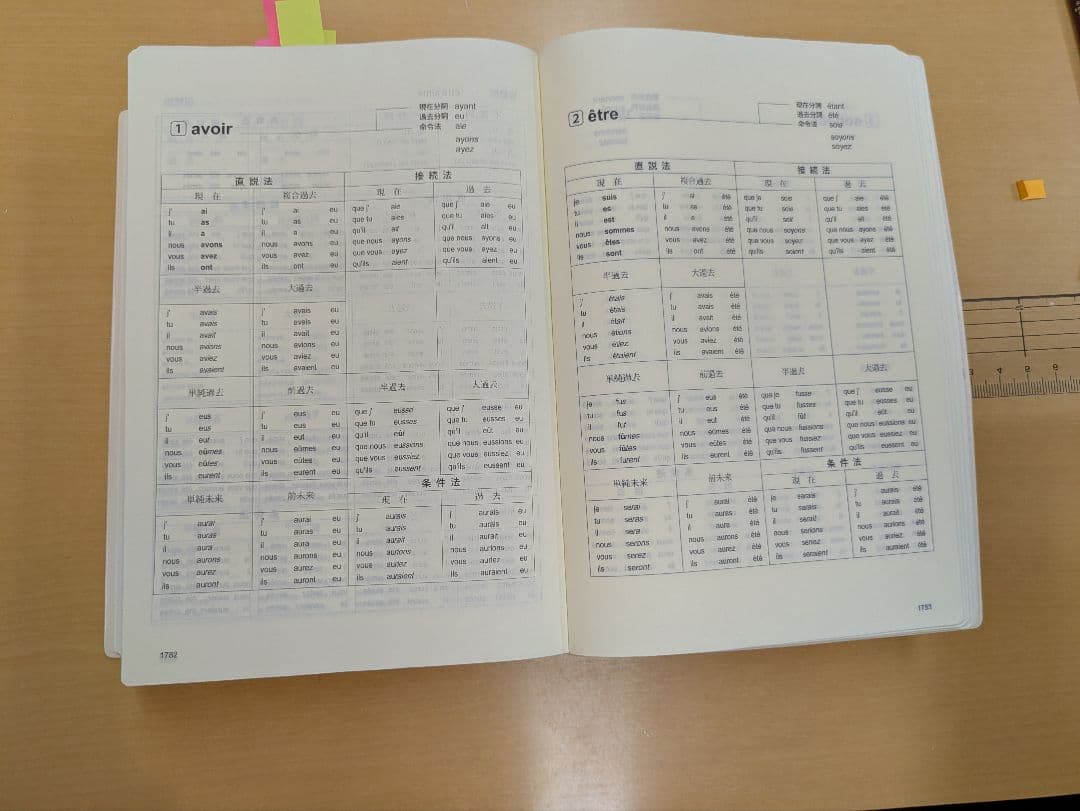 1 avoir
現在分詞 ayant
過去分詞 eu
命令法 aie
ayons
ayez
直説法 接続法
現在 複合過去 現在 過去
j' ai j' ai eu que j' aie que j' aie eu
tu as tu as eu que tu aies que tu aies eu
il a il a eu qu'il ait qu'il ait eu
nous avons nous avons eu que nous ayons que nous ayons eu
vous avez vous avez eu que vous ayez que vous ayez eu
ils ont ils ont eu qu'ils aient qu'ils aient eu
半過去 大過去
j' avais j' avais eu
tu avais tu avais eu
il avait il avait eu
nous avions nous avions eu
vous aviez vous aviez eu
ils avaient ils avaient eu
単純過去 前過去 半過去 大過去
j' eus j' eus eu que j' eusse que j' eusse eu
tu eus tu eus eu que tu eusses que tu eusses eu
il eut il eut eu qu'il eût qu'il eût eu
nous eûmes nous eûmes eu que nous eussions que nous eussions eu
vous eûtes vous eûtes eu que vous eussiez que vous eussiez eu
ils eurent ils eurent eu qu'ils eussent qu'ils eussent eu
条件法
単純未来 前未来 現在 過去
j' aurai j' aurai eu j' aurais j' aurais eu
tu auras tu auras eu tu aurais tu aurais eu
il aura il aura eu il aurait il aurait eu
nous aurons nous aurons eu nous aurions nous aurions eu
vous aurez vous aurez eu vous auriez vous auriez eu
ils auront ils auront eu ils auraient ils auraient eu
1782
2 être
現在分詞 étant
過去分詞 été
命令法 sois
soyons
soyez
直説法 接続法
現在 複合過去 現在 過去
je suis j' ai été que je sois que j' aie été
tu es tu as été que tu sois que tu aies été
il est il a été qu'il soit qu'il ait été
nous sommes nous avons été que nous soyons que nous ayons été
vous êtes vous avez été que vous soyez que vous ayez été
ils sont ils ont été qu'ils soient qu'ils aient été
半過去 大過去
j' étais j' avais été
tu étais tu avais été
il était il avait été
nous étions nous avions été
vous étiez vous aviez été
ils étaient ils avaient été
単純過去 前過去 半過去 大過去
je fus j' eus été que je fusse que j' eusse été
tu fus tu eus été que tu fusses que tu eusses été
il fut il eut été qu'il fût qu'il eût été
nous fûmes nous eûmes été que nous fussions que nous eussions été
vous fûtes vous eûtes été que vous fussiez que vous eussiez été
ils furent ils eurent été qu'ils fussent qu'ils eussent été
条件法
単純未来 前未来 現在 過去
je serai j' aurai été je serais j' aurais été
tu seras tu auras été tu serais tu aurais été
il sera il aura été il serait il aurait été
nous serons nous aurons été nous serions nous aurions été
vous serez vous aurez été vous seriez vous auriez été
ils seront ils auront été ils seraient ils auraient été
1783
3 4 5 6